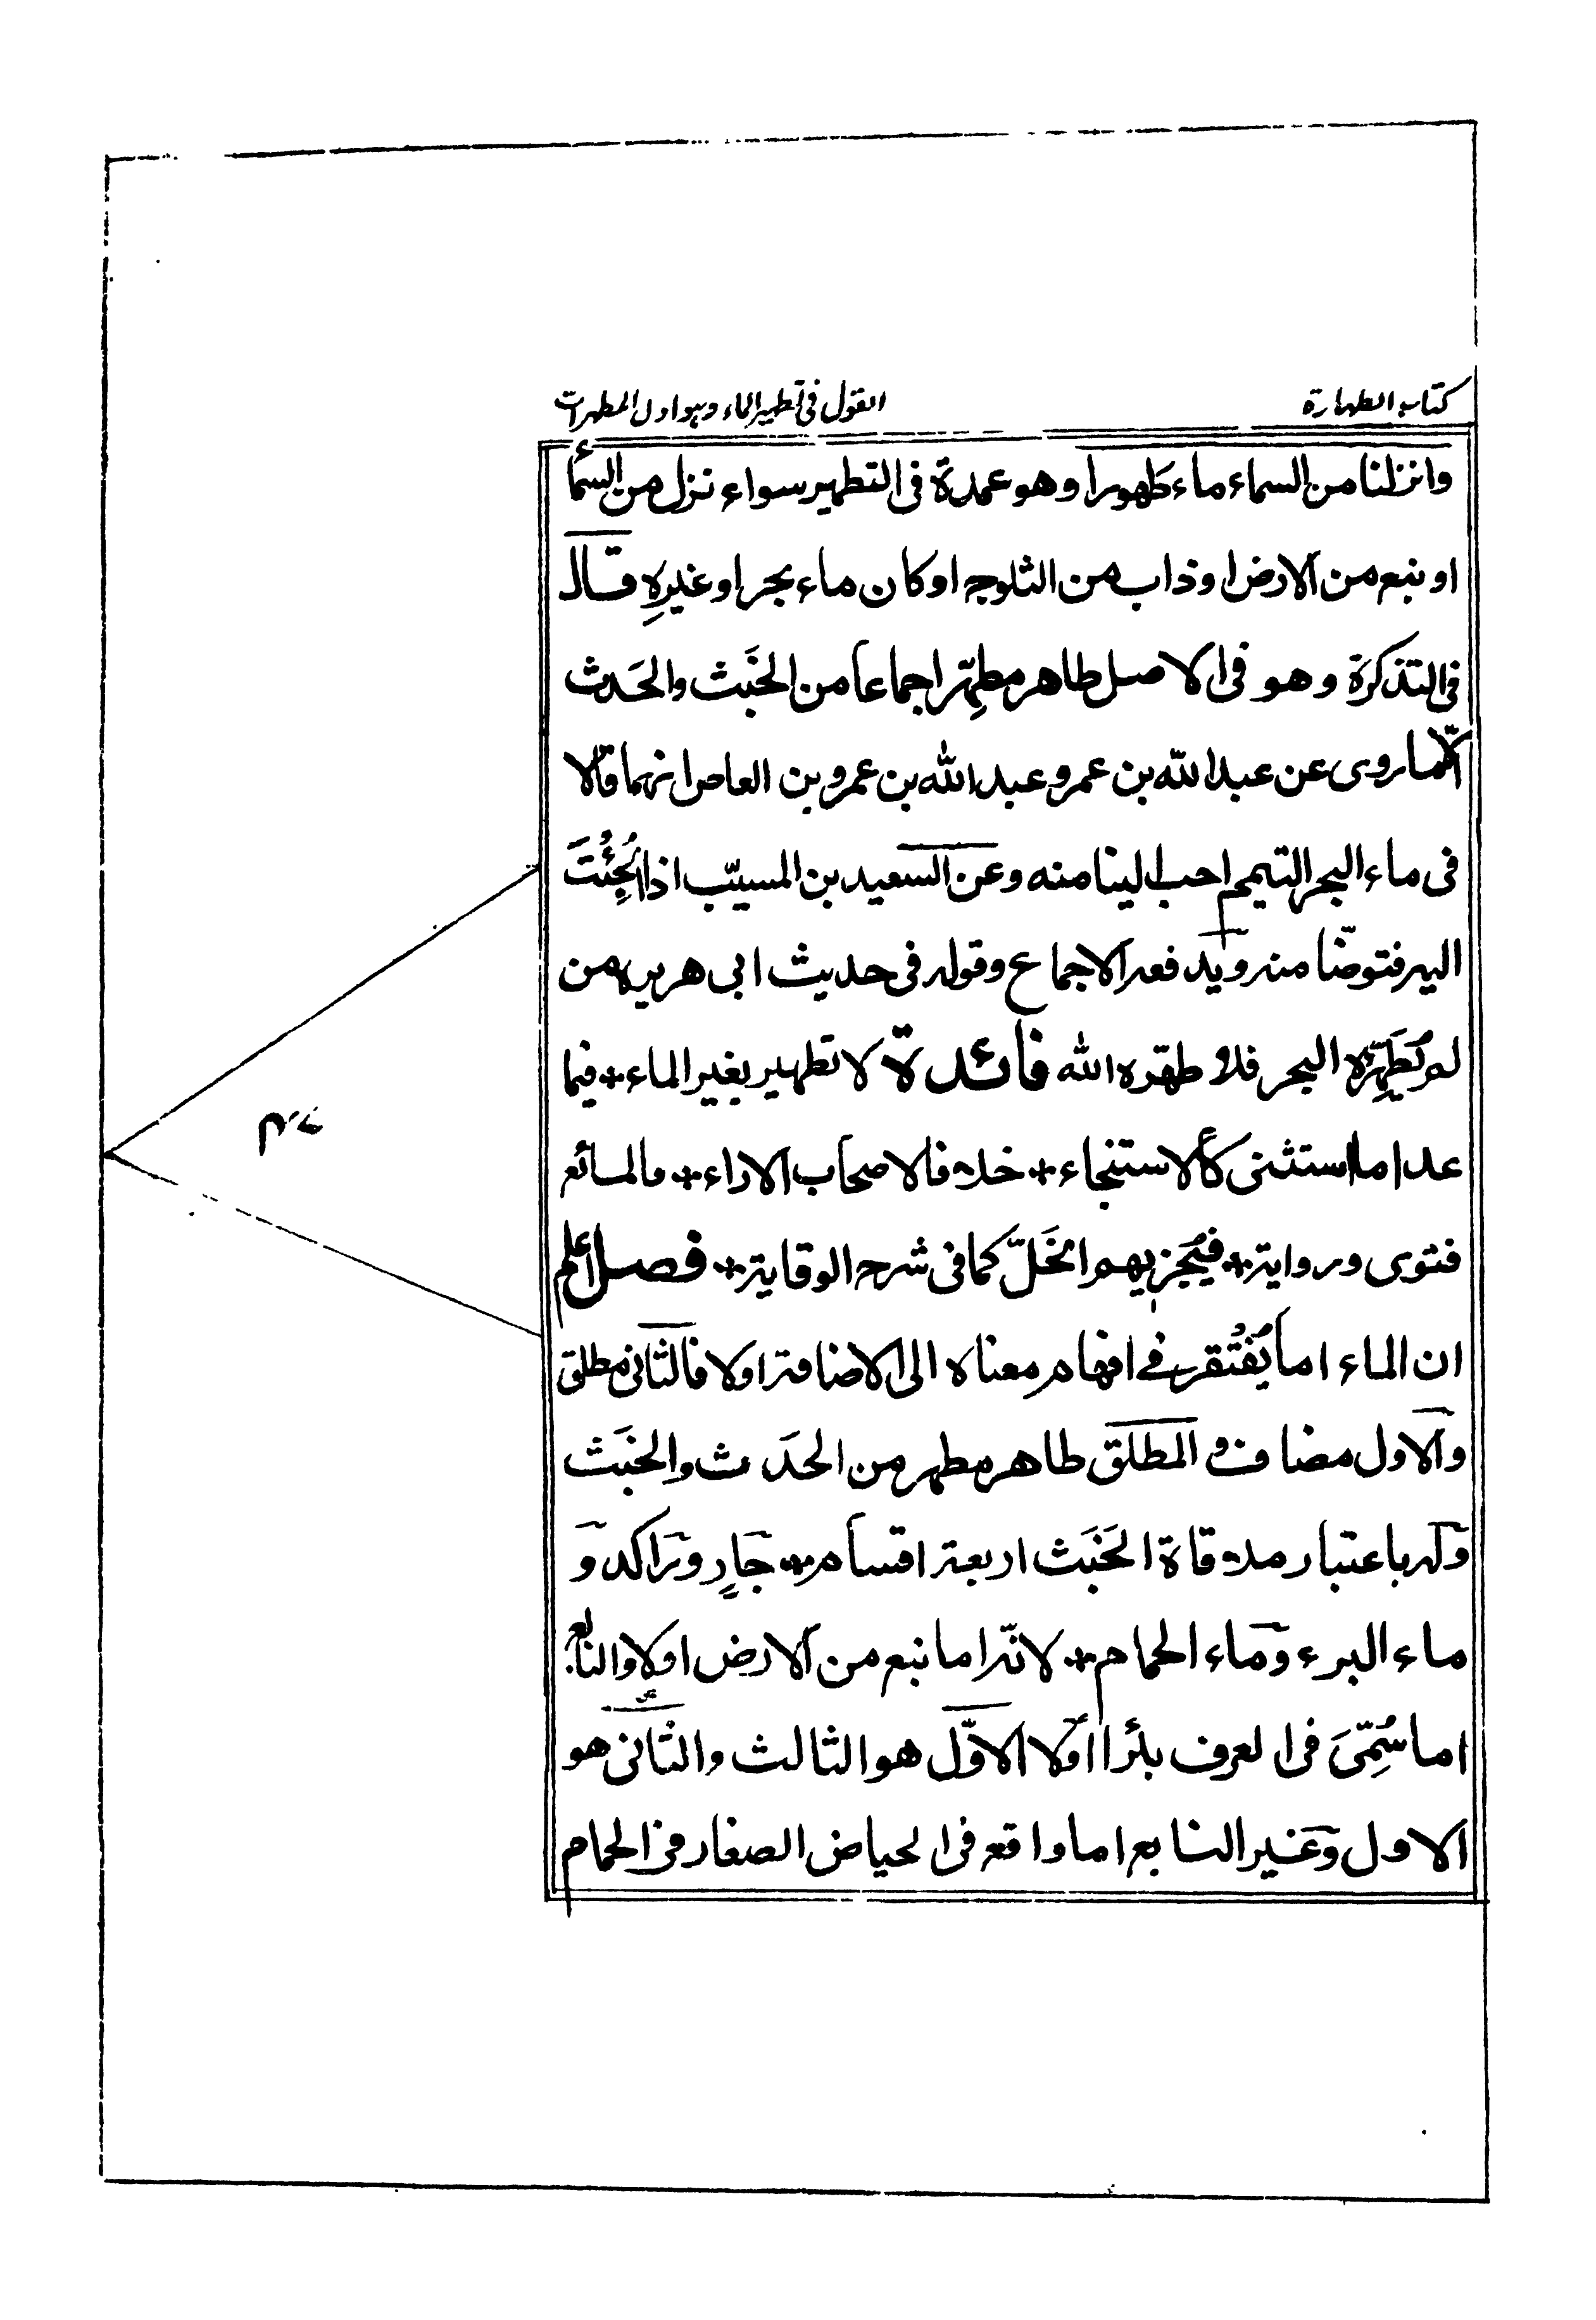 كتاب الطهارة
القول فی تطهیر الماء وهو اول المطهرات
وانزلنا من السماء ماء طهورا وهو عمدة فی التطهیر سواء نزل من السمآ
او نبع من الارض او ذاب من الثلوج او كان ماء بحر او غیرِهِ قال
فی التذكرة وهو فی الاصل طاهر مطهِّر اجماعا من الخَبَث والحَدث
الّا ما روی عن عبد الله بن عمر و عبد الله بن عمرو بن العاص انهما قالا
فی ماء البحر التیمم احب الینا منه وعن السعید بن المسیّب اذا اُلجِئْتَ
الیه فتوضّا منه ویدفعه الاجماع وقوله فی حدیث ابی هریره من
لم یُطَهِّره البحر فلا طهّره الله فائدة لا تطهیر بغیر الماء * فیما
عدا ما استثنی كالاستنجاء * خلافا لاصحاب الاراء * فالمائع
فتوی وروایة * فیُجزیهم الخَلّ كما فی شرح الوقایة * فصل اعلم
ان الماء اما یُفْتَقر فی افهام معناه الی الاضافة اولا فالثانی مطلق
والاول مضاف والمطلق طاهر مطهر من الحَدث والخَبَث
وله باعتبار ملاقاة الخَبَث اربعة اقسام * جَارٍ ورَاكد وَ
ماء البرء وَماء الحمام * لانّه اما نبع من الارض اولا والنابع
اما سُمِّیَ فی العرف بئرا اولا الاوّل هو الثالث والثانی هو
الاول وَغیر النابع اما واقع فی الحیاض الصغار فی الحمام